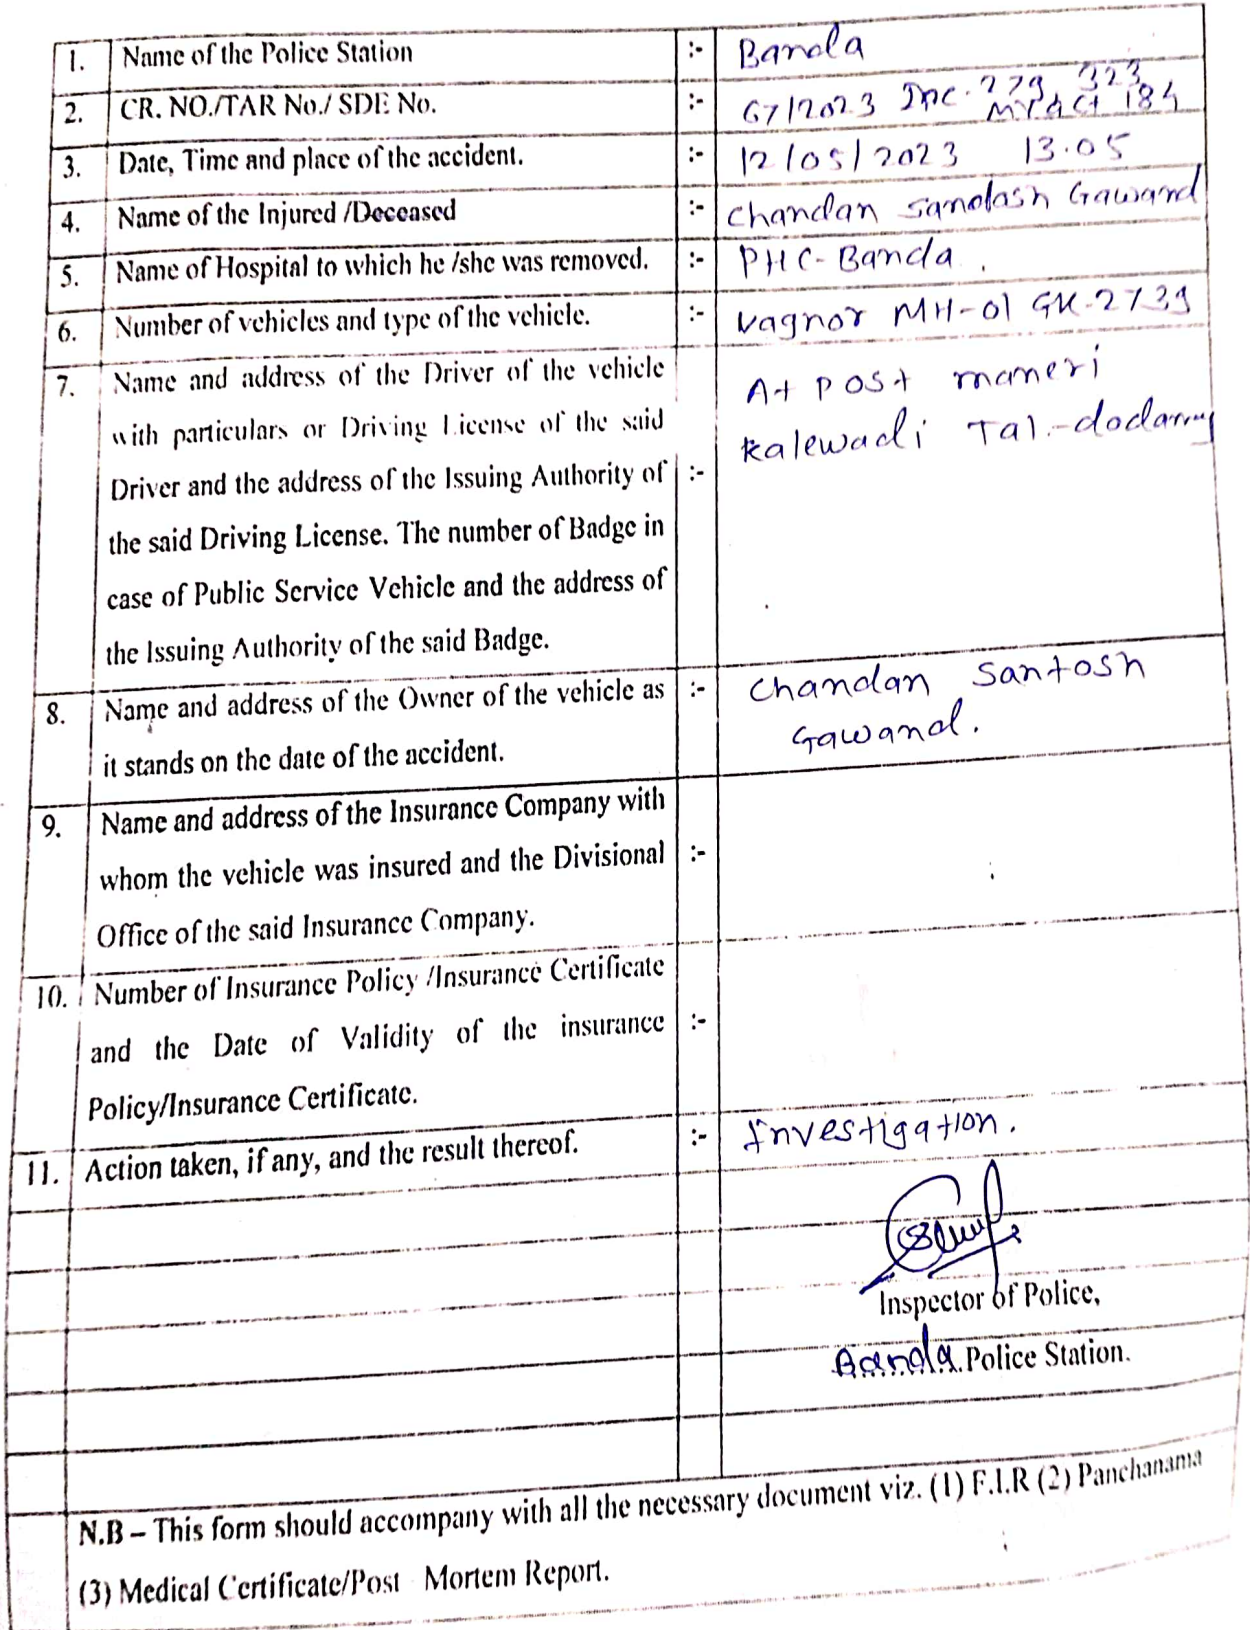 1. Name of the Police Station :- Banda
2. CR. NO./TAR No./ SDE No. :- 67/2023 Inc. 279, 323
MV act 184
3. Date, Time and place of the accident. :- 12/05/2023 13.05
4. Name of the Injured /Deceased :- Chandan Sanotosh Gawand
5. Name of Hospital to which he /she was removed. :- PHC-Banda.
6. Number of vehicles and type of the vehicle. :- Vagnor MH-01 GK-2739
7. Name and address of the Driver of the vehicle
with particulars or Driving License of the said
Driver and the address of the Issuing Authority of :-
the said Driving License. The number of Badge in
case of Public Service Vehicle and the address of
the Issuing Authority of the said Badge.
At post maneri
kalewadi Tal.-dodamarg
8. Name and address of the Owner of the vehicle as :- Chandan Santosh
it stands on the date of the accident. Gawand.
9. Name and address of the Insurance Company with
whom the vehicle was insured and the Divisional :-
Office of the said Insurance Company.
10. Number of Insurance Policy /Insurance Certificate
and the Date of Validity of the insurance :-
Policy/Insurance Certificate.
11. Action taken, if any, and the result thereof. :- Investigation.
Inspector of Police,
Banda Police Station.
N.B – This form should accompany with all the necessary document viz. (1) F.I.R (2) Panchanama
(3) Medical Certificate/Post Mortem Report.